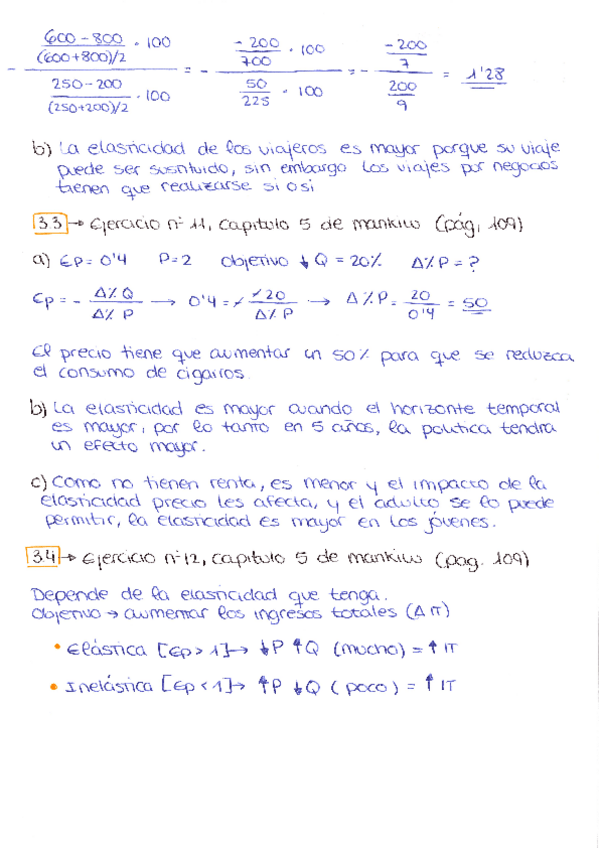 - (600 - 800 / (600+800)/2 · 100) / (250 - 200 / (250+200)/2 · 100) = - (-200/700 · 100) / (50/225 · 100) = - (-200/7) / (200/9) = 1'28
b) La elasticidad de los viajeros es mayor porque su viaje
puede ser sustituido, sin embargo los viajes por negocios
tienen que realizarse si o si
3.3 → Ejercicio nº 11, capitulo 5 de mankiw (pág, 109)
a) Ep= 0'4 P=2 Objetivo ↓Q = 20% Δ% P = ?
Ep = - Δ% Q / Δ% P → 0'4 = - -20 / Δ% P → Δ% P = 20 / 0'4 = 50
El precio tiene que aumentar un 50% para que se reduzca
el consumo de cigarros
b) La elasticidad es mayor cuando el horizonte temporal
es mayor, por lo tanto en 5 años, la politica tendra
un efecto mayor.
c) Como no tienen renta, es menor y el impacto de la
elasticidad precio les afecta, y el adulto se lo puede
permitir, la elasticidad es mayor en los jóvenes.
3.4 → Ejercicio nº12, capitulo 5 de mankiw (pag. 109)
Depende de la elasticidad que tenga.
Objetivo → aumentar los ingresos totales (Δ IT)
• Elástica [Ep > 1] → ↓P ↑Q (mucho) = ↑ IT
• Inelástica [Ep < 1] → ↑P ↓Q (poco) = ↑ IT